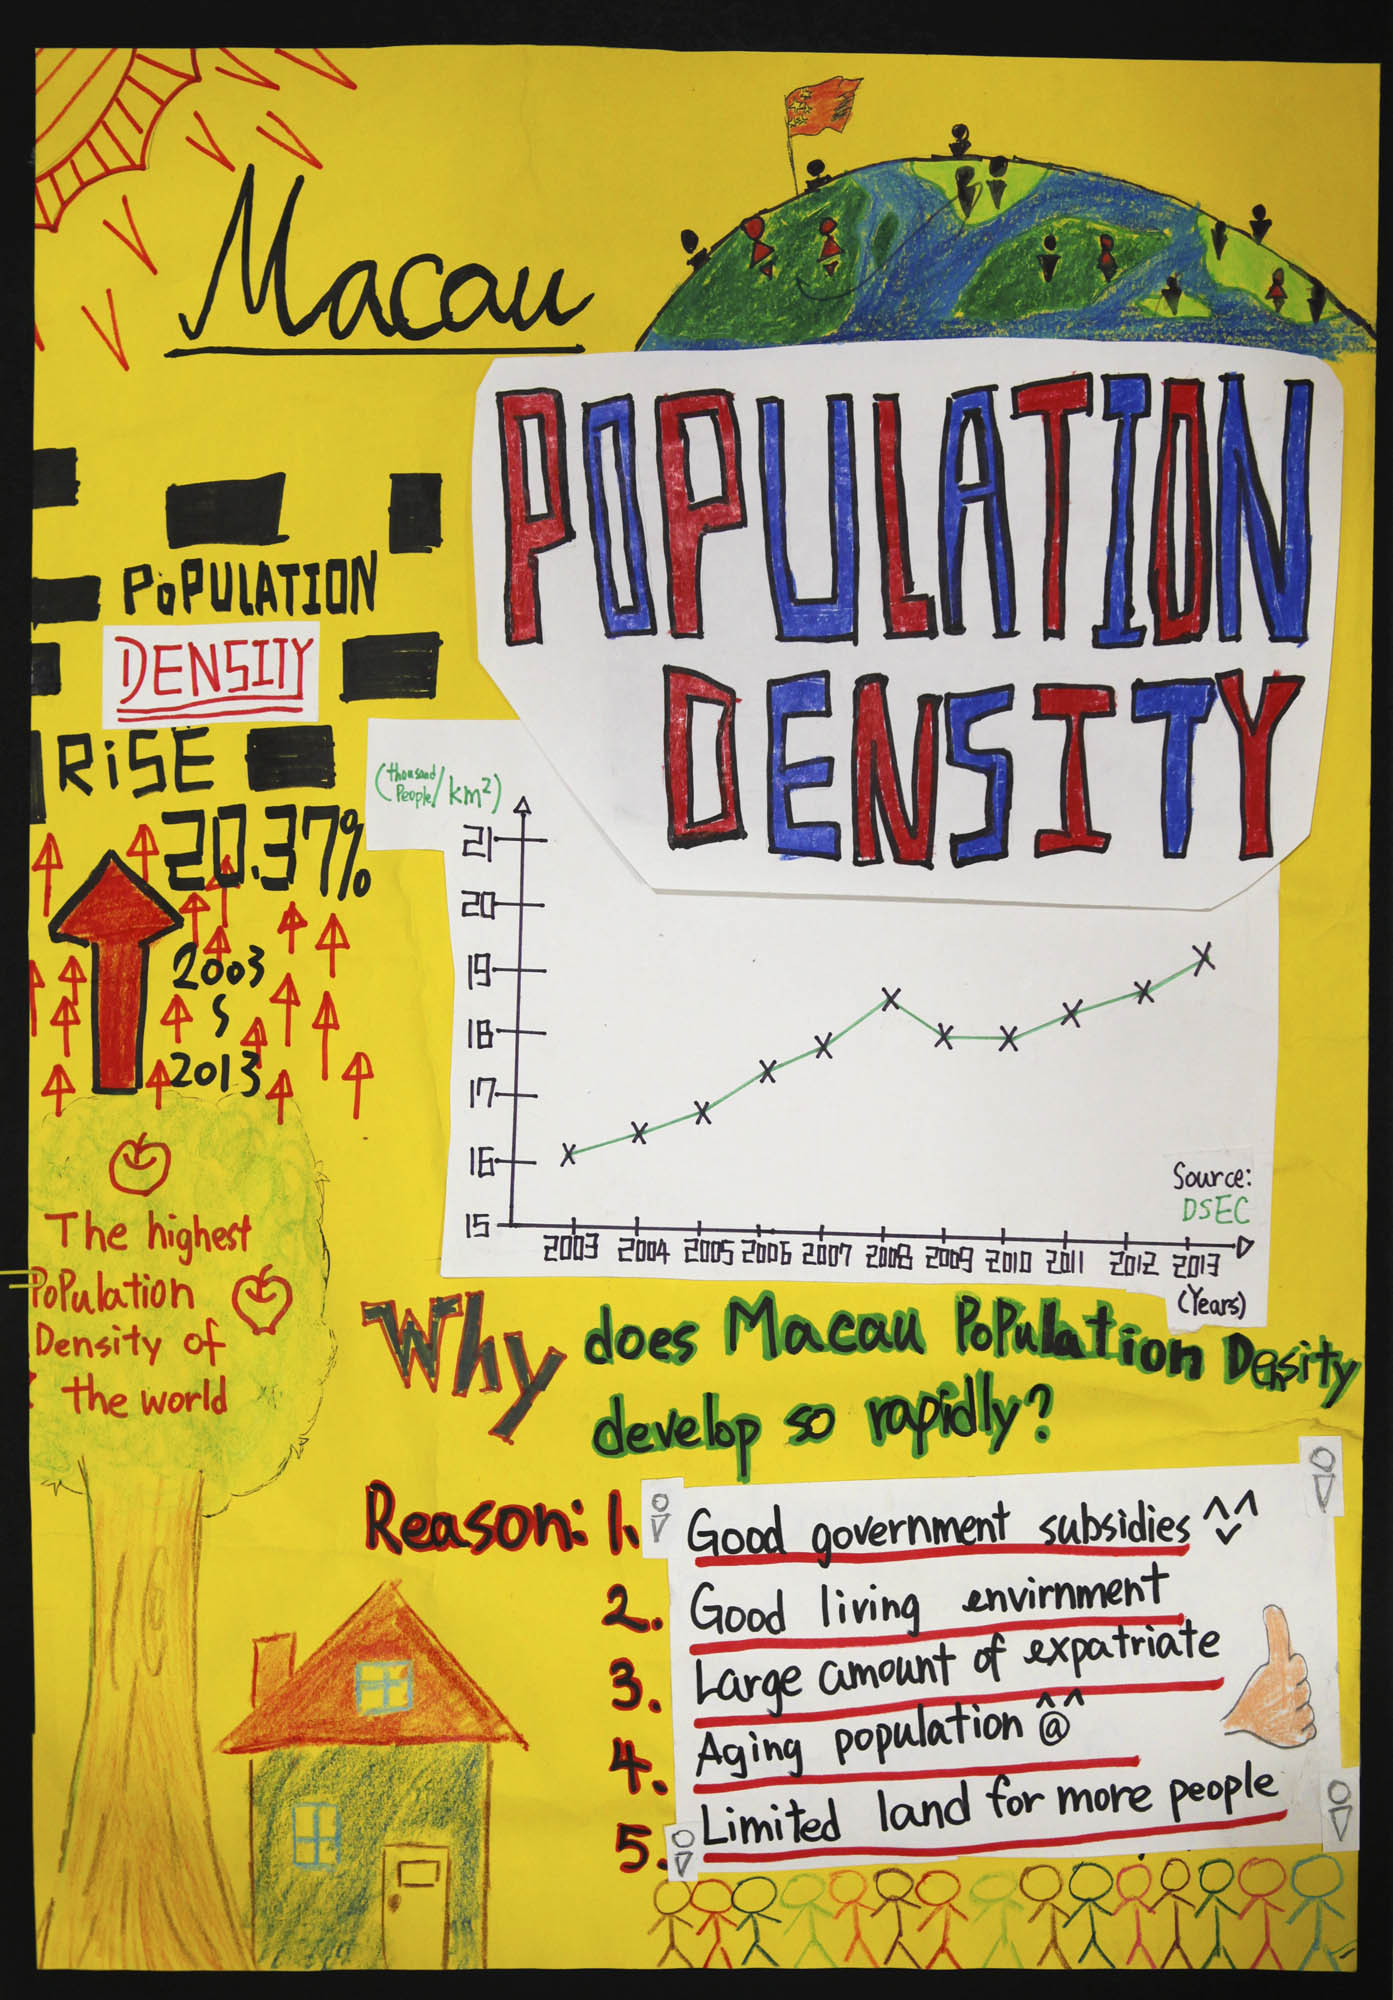 Macau
POPULATION
DENSITY
POPULATION
DENSITY
RiSE
20.37%
2003
2013
The highest
PoPulation
Density of
the world
(thousand People/km²)
21
20
19
18
17
16
15
2003 2004 2005 2006 2007 2008 2009 2010 2011 2012 2013
(Years)
Source:
DSEC
Why does Macau PoPulation Density
develop so rapidly?
Reason: 1. Good government subsidies ^^
2. Good living envirnment
3. Large amount of expatriate
4. Aging population ^@^
5. Limited land for more people